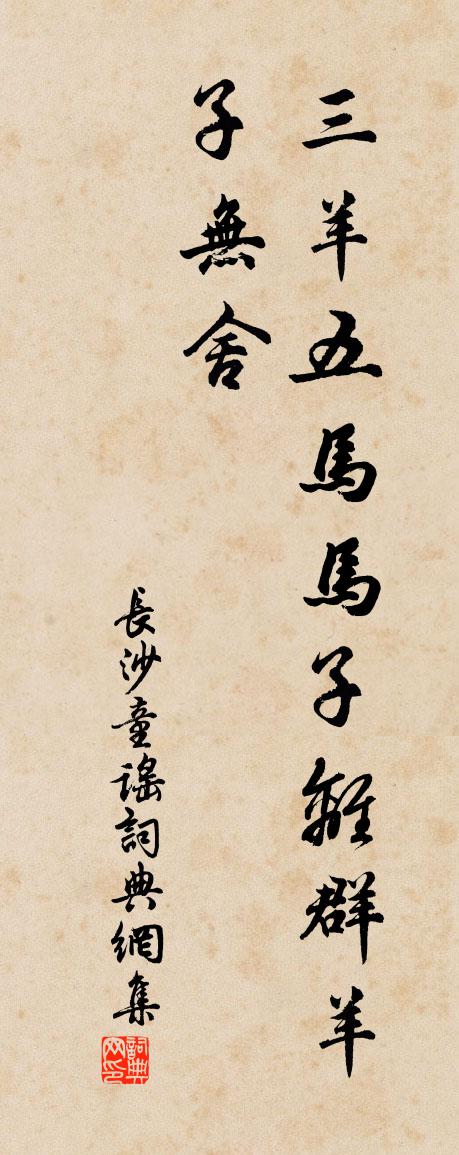 三羊五馬馬子離群羊
子無舍
長沙童謠詞典網集
詞典网印